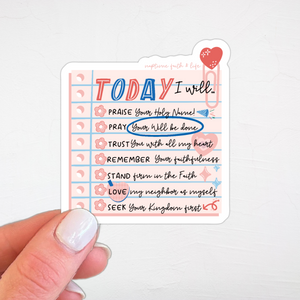 captivate faith & life
TODAY I will...
PRAISE Your Holy Name!
PRAY Your Will be done
TRUST You with all my heart
REMEMBER Your faithfulness
STAND firm in the Faith
LOVE my neighbor as myself
SEEK Your Kingdom first